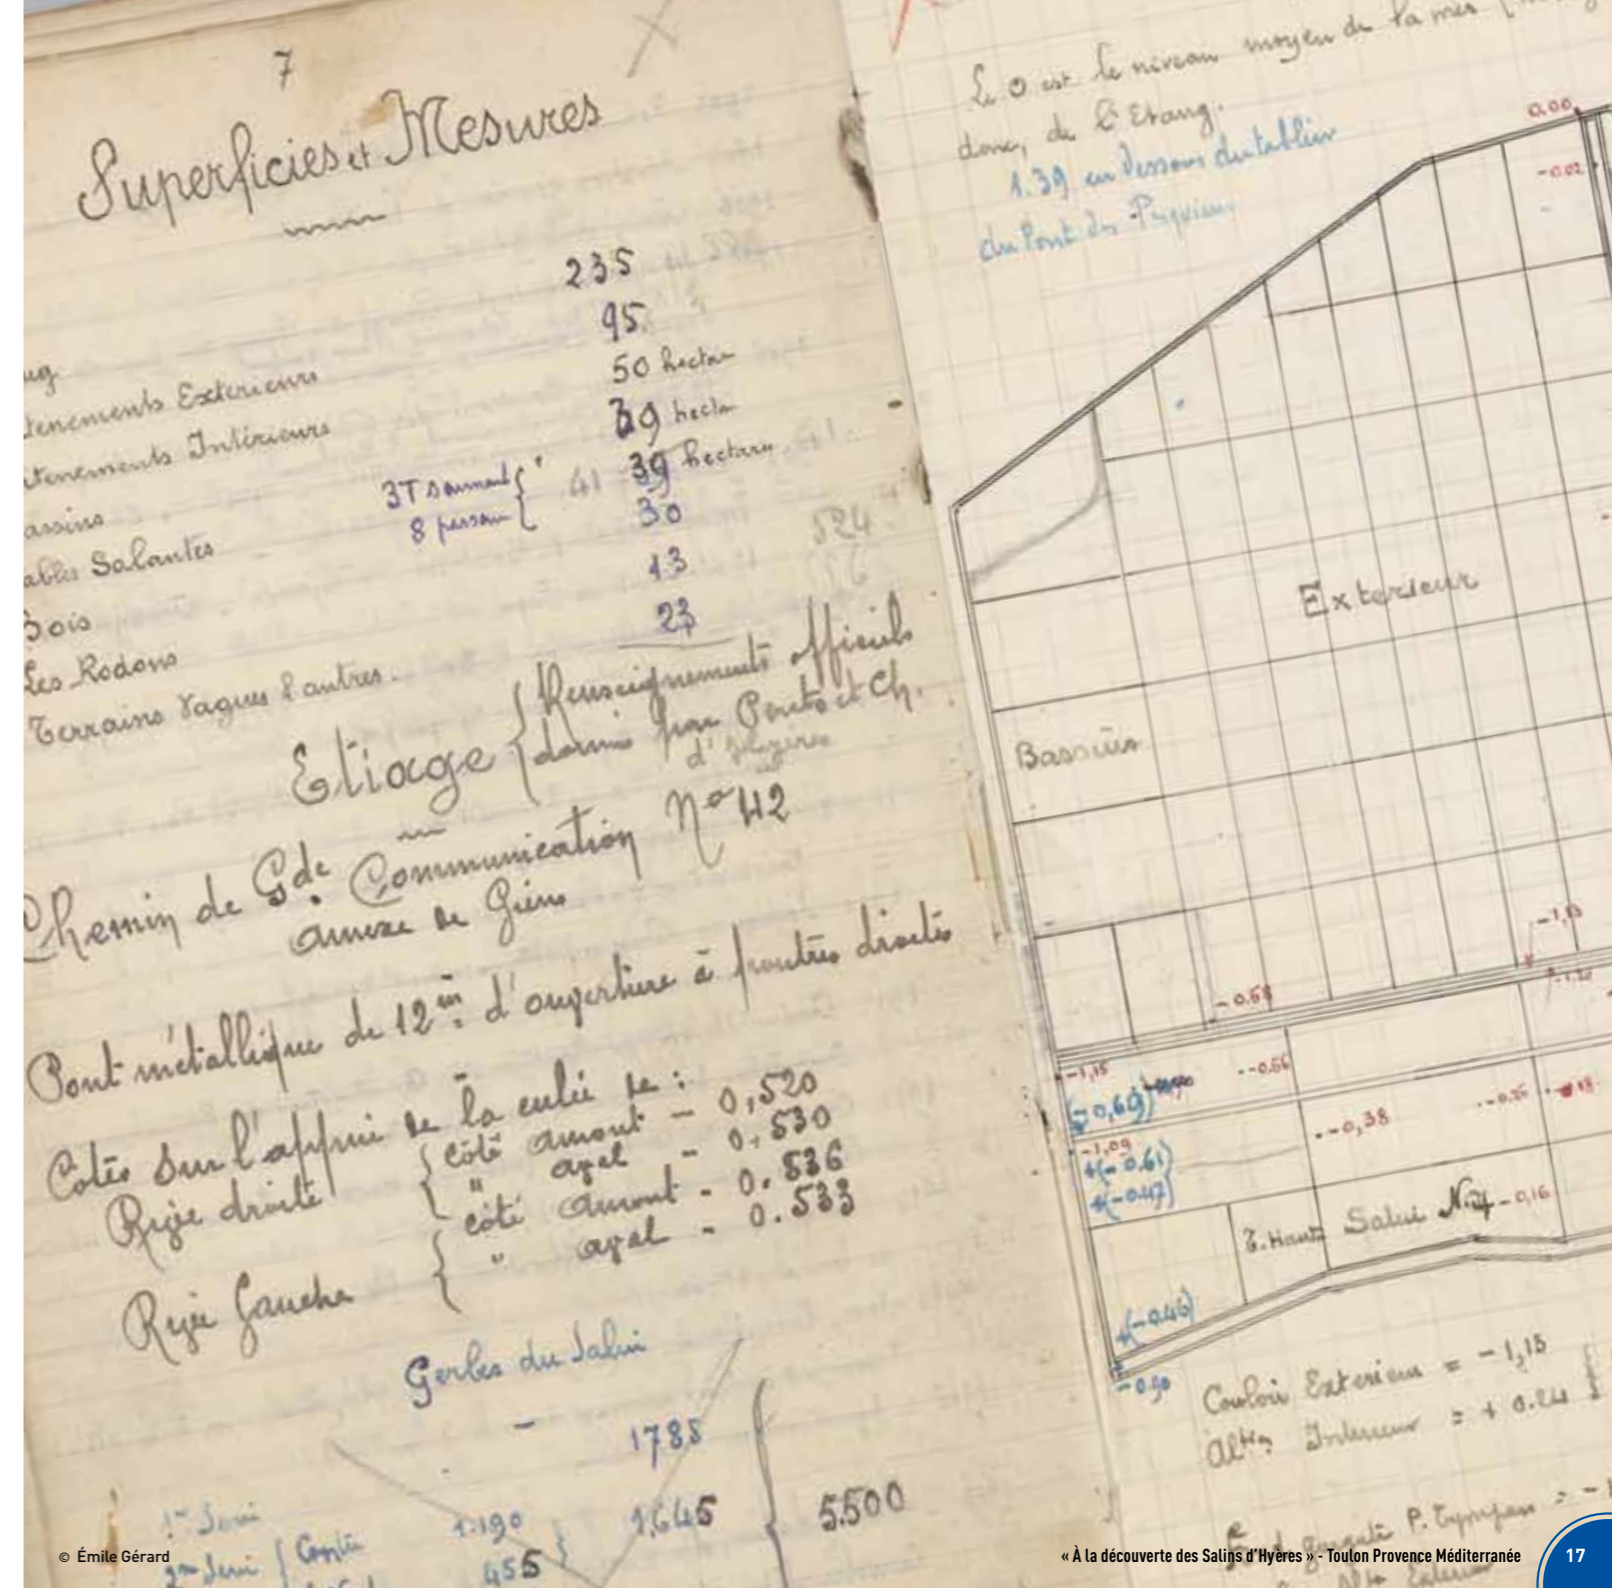 7
Superficies et Mesures
235
95
50 hectar
39 hecta
39 hectares
30
13
23
ug
tenements Exterieurs
tenements Intérieurs
assins
ables Salantes
3T saunent
8 person
41
Bois
Les Rodons
Terrains Vagues & autres.
524
Etiage
Renseignements officiels
donnés par Ponts et Ch.
d'Hyères
Chemin de Gde Communication No 42
annexe de Giens
Pont métallique de 12m d'ouverture à poutres droites
Cotes sur l'appui de la culée de :
Rive droite
côté amont - 0,520
" aval - 0,530
Rive Gauche
côté amont - 0.536
" aval - 0.533
Gerbes du Salin
1785
1.190
455
1,645
5.500
Le 0 est le niveau moyen de la mer
donc, de l'Etang.
1.39 en dessous du tablier
du Pont des
0.00
-0.02
Exterieur
Bassins
-1,15
-0.68
-1,15
-0.66
(-0,60)
-1,09
+(-0.61)
+(-0.47)
-0,38
T. Haut
Salin No 4
-0,16
+(-0.46)
-0.90
Couloir Exterieur = -1,15
Interieur = + 0.24
© Émile Gérard
« À la découverte des Salins d'Hyères » - Toulon Provence Méditerranée
17